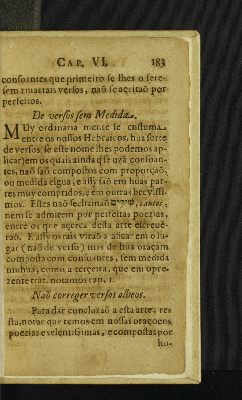 CAP. VI. 183
consoantes que primeiro se lhes o fere-
sem: mas tais versos, naõ se açeitaõ por
perfeitos.
De versos sem Medida.
Muy ordinaria mente se custuma
entre os nossos Hebraicos, hua sorte
de versos, se este nome lhes podemos ap-
licar) em os quais ainda q̃ se uzà consoan-
tes, naõ saõ compostos com proporçaõ,
ou medida algua, e assy saõ em huas par-
tes muy compridos, e em outras brevissi-
mos. Estes naõ se chamaõ שירים, cantos,
nem se admitem por perfeitas poezias,
entre os que açerca desta arte escreve-
raõ. E assy os tais viraõ a ficar em o lu-
gar (naõ de verso) mas de hua oraçam
composta com consoantes, sem medida
ninhua, como a terçeira, que em o pre-
zente trat. notamos cap. 1.
Naõ correger versos alheos.
Para dar concluzaõ a esta arte, res
ta, notar que temos em nossas oraçoens
poezias exselentissimas, e compostas por
ho-